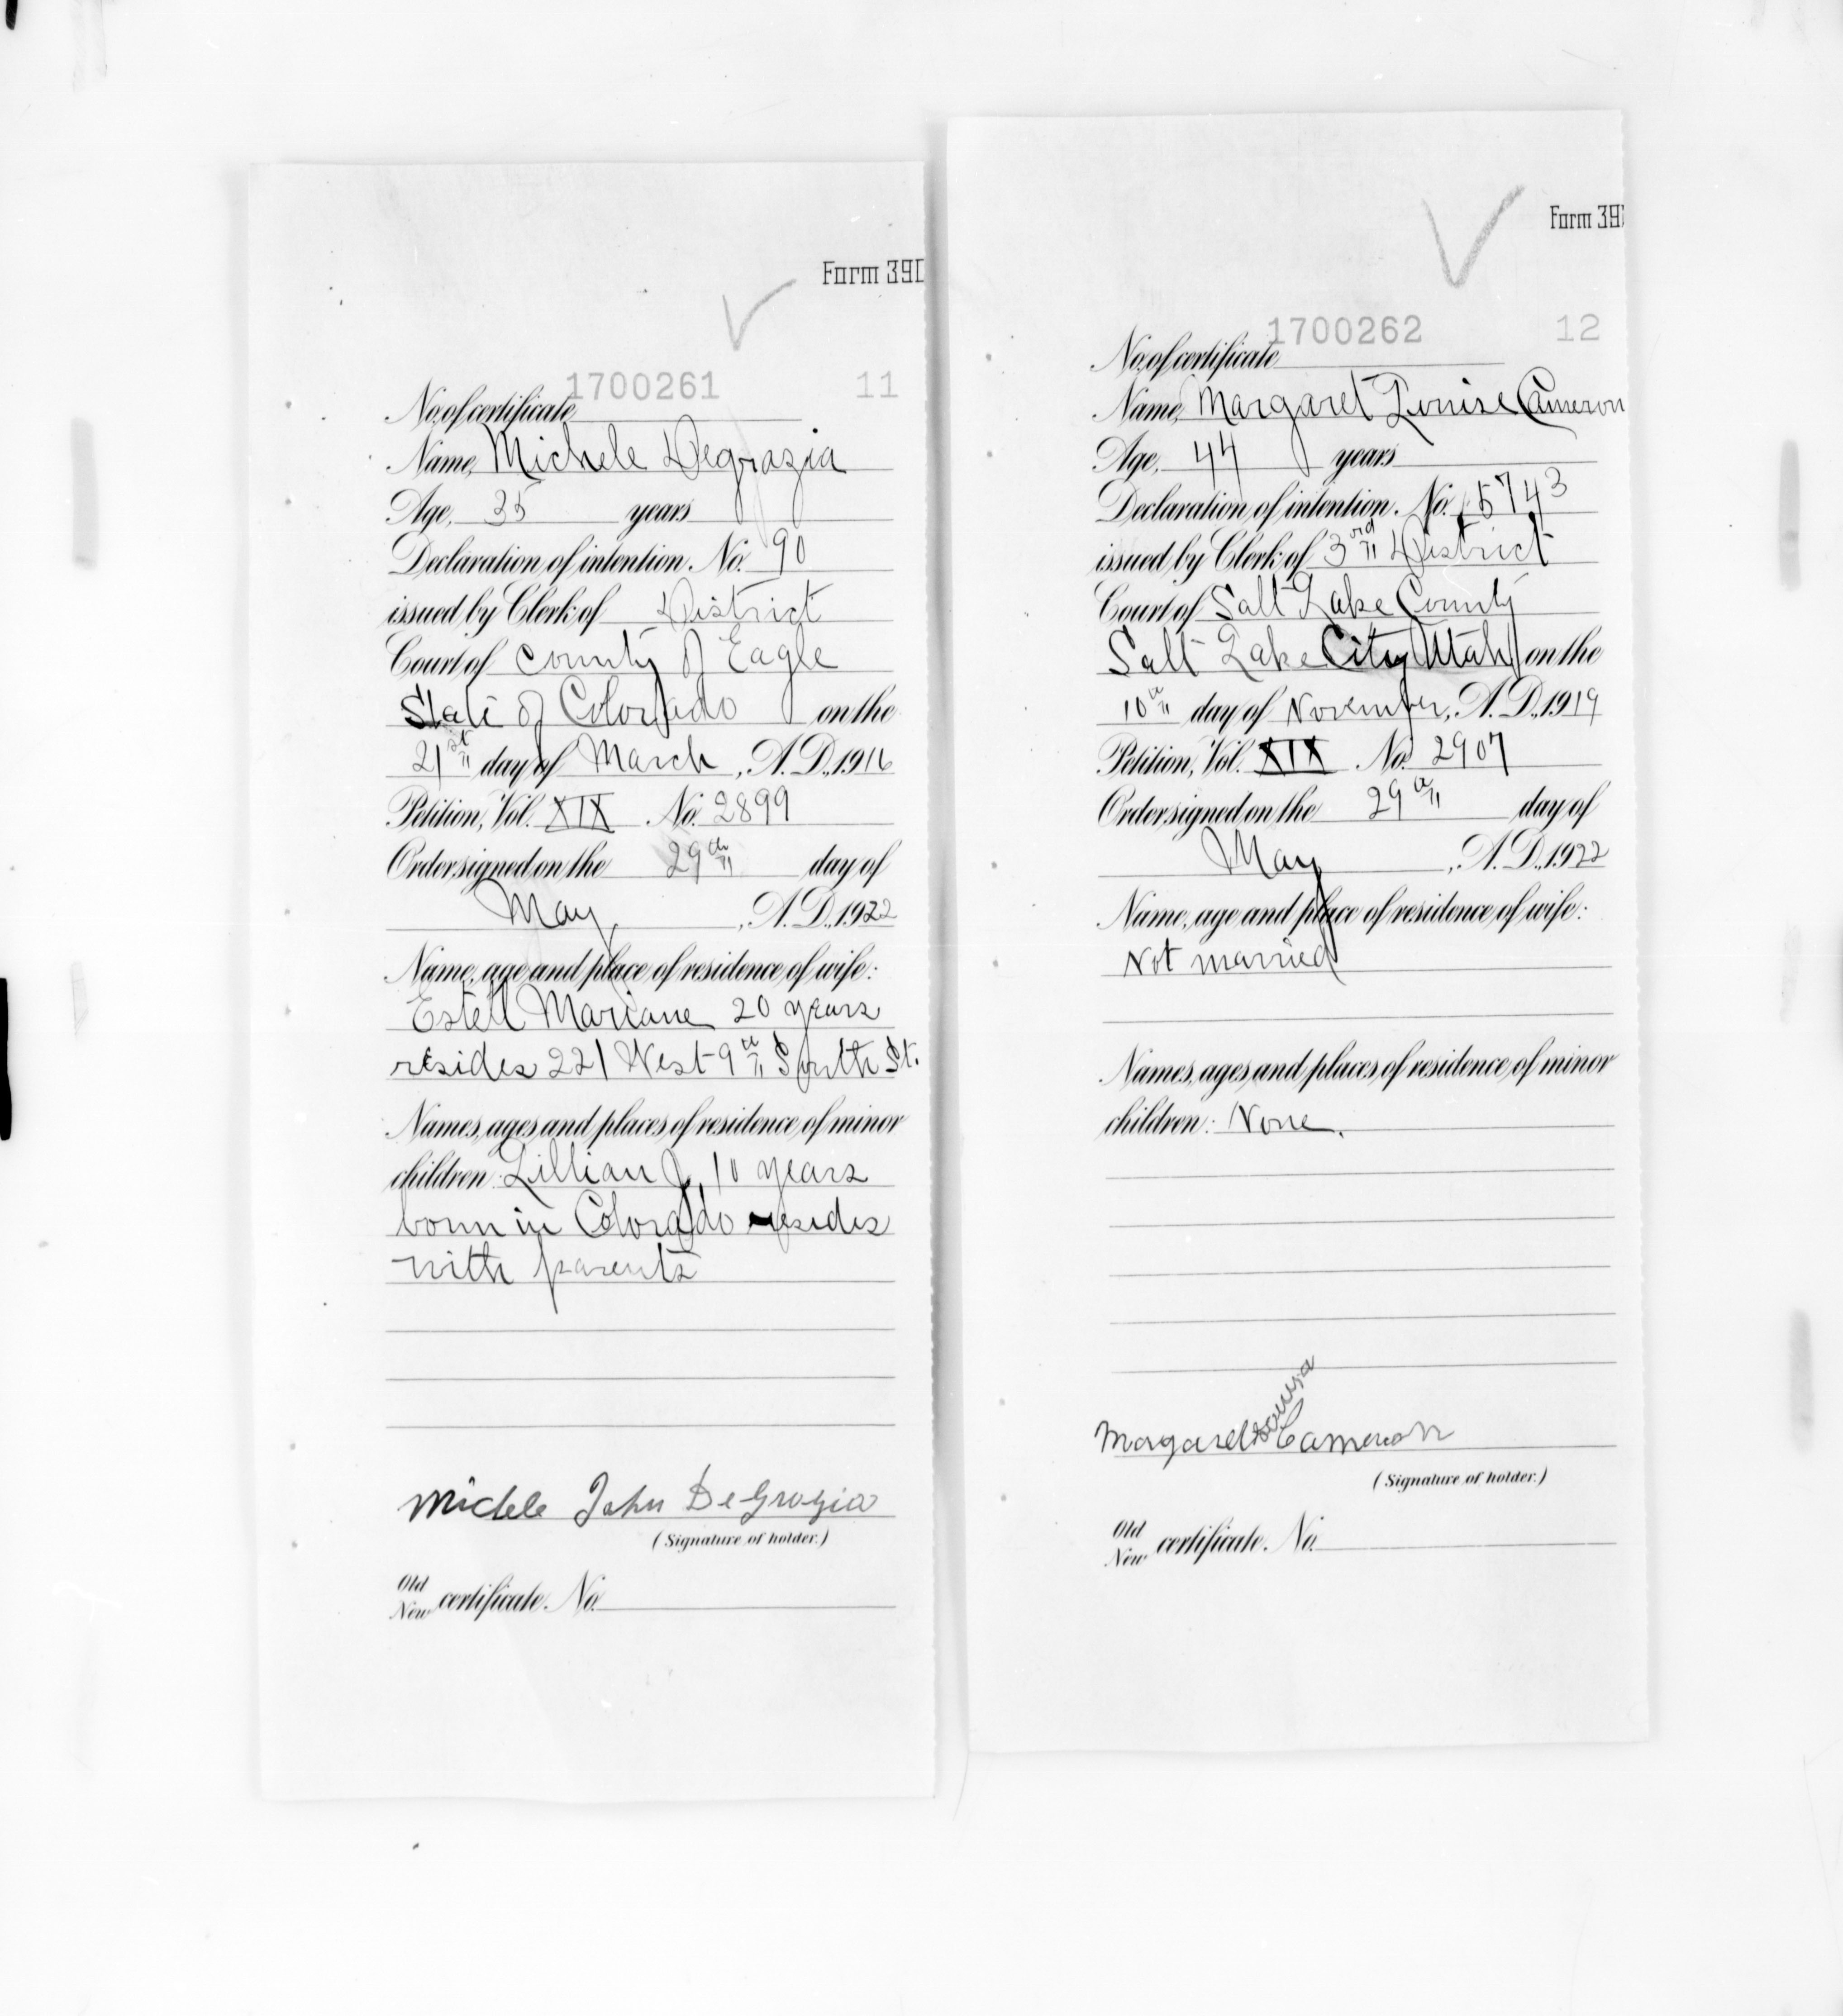 Form 390
1700261 11
No. of certificate
Name, Michele Degrazia
Age, 35 years
Declaration of intention. No. 90
issued by Clerk of District
Court of County of Eagle
State of Colorado on the
21st day of March, A.D., 1916
Petition, Vol. XIX No. 2899
Order signed on the 29th day of
May, A.D., 1922
Name, age and place of residence of wife:
Estell Mariane 20 years
resides 221 West 9th South St.
Names, ages and places of residence of minor
children: Lillian J, 10 years
born in Colorado resides
with parents
Michele John DeGrazia
(Signature of holder.)
Old
New certificate. No.
Form 39
1700262 12
No. of certificate
Name, Margaret Louise Cameron
Age, 44 years
Declaration of intention. No. 5743
issued by Clerk of 3rd District
Court of Salt Lake County
Salt Lake City Utah on the
10th day of November, A.D., 1919
Petition, Vol. XIX No. 2907
Order signed on the 29th day of
May, A.D., 1922
Name, age and place of residence of wife:
Not married
Names, ages and places of residence of minor
children: None.
Margaret Louisa Cameron
(Signature of holder.)
Old
New certificate. No.